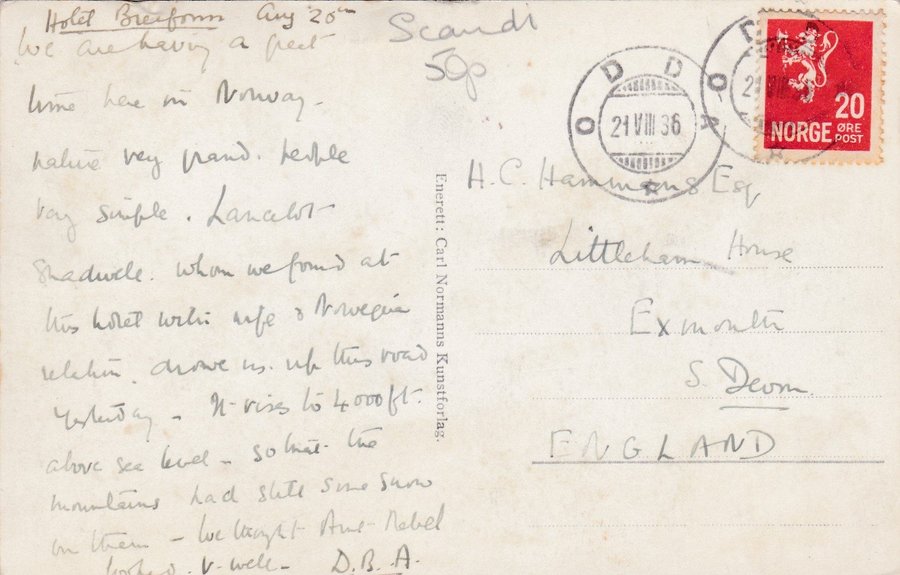 Hotel Breifonn Aug 20th
We are having a great
time here in Norway -
nature very grand. people
very simple. Lancelot
Shadwell. whom we found at
this hotel with wife & Norwegian
relation. drove us. up this road
yesterday - It rises to 4000 ft.
above sea level - so that the
mountains had still some snow
on them - We thought Aunt Mabel
looked. v. well - D.B.A.
Scandi
50p
Enerett: Carl Normanns Kunstforlag.
ODDA
21 VIII 36
ODDA
21 VIII 36
20
NORGE ØRE
POST
H.C. Hammans Esq
Littleham House
Exmouth
S. Devon
ENGLAND